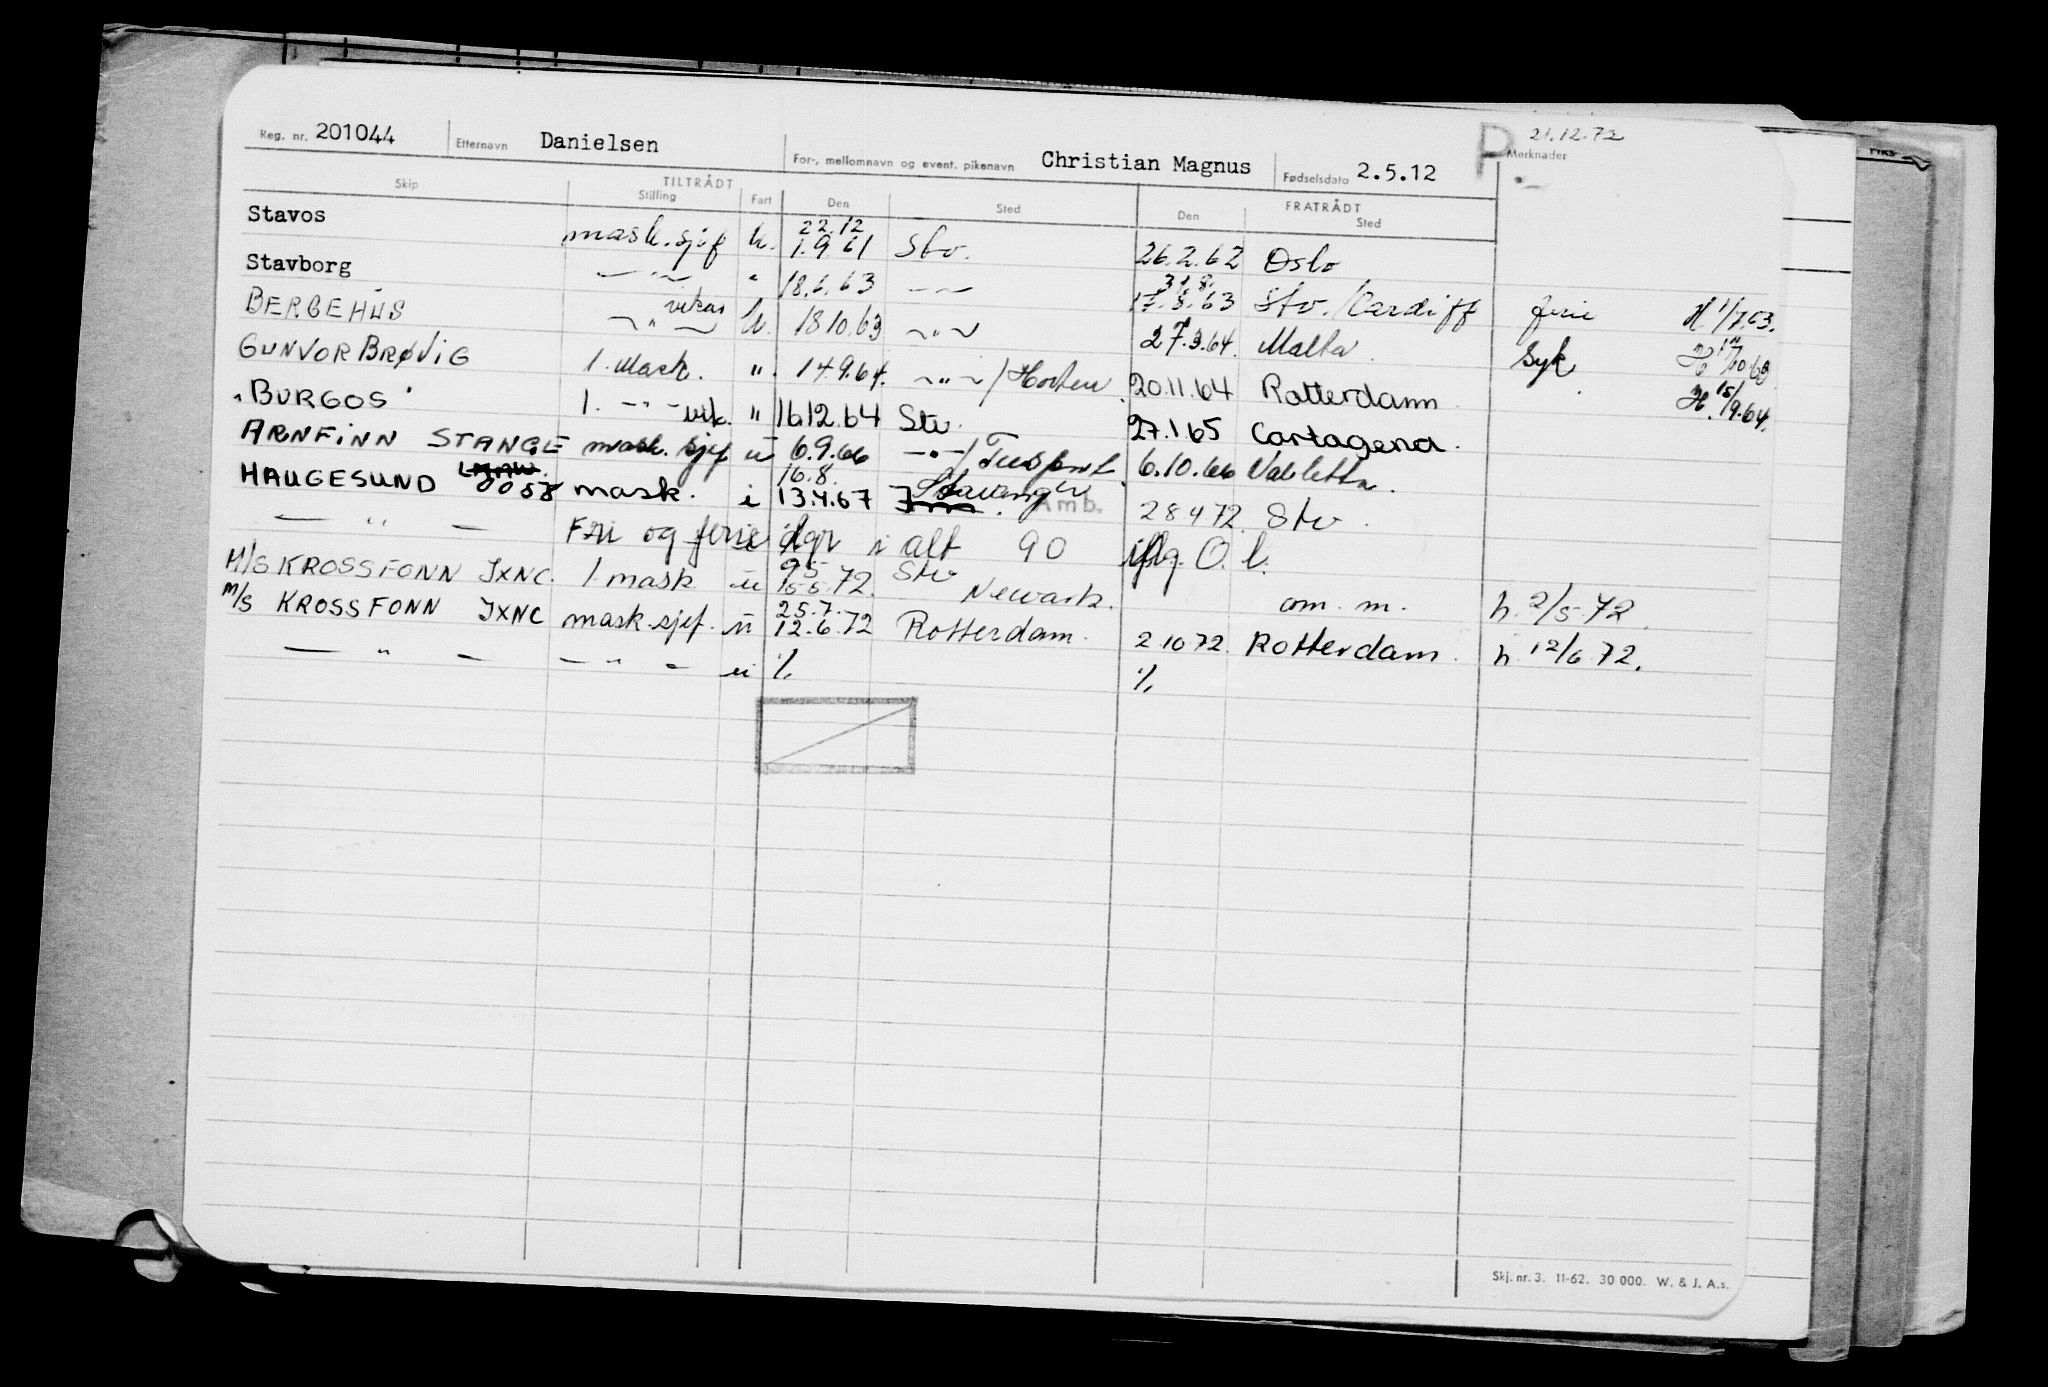 Reg. nr. 201044 Etternavn Danielsen For-, mellomnavn og event. pikenavn Christian Magnus Fødselsdato 2.5.12 P 21.12.72 Merknader
TILTRÅDT FRATRÅDT
Skip Stilling Fart Den Sted Den Sted
22.12
Stavos mask.sjef u. 1.9.61 Stv. 26.2.62 Oslo
31.8.
Stavborg — " — " 18.6.63 — " — 17.8.63 Stv./Cardiff ferie H 1/7.63.
BERGEHUS — " — vikar U. 18.10.63 — " — 27.3.64. Malta. Syk
GUNVOR BRØVIG 1. Mask. " 14.9.64. — " — / Horten 20.11.64 Rotterdam H. 15/9.64.
"BURGOS" 1. — " — vik. " 16.12.64 Stv. 27.1.65 Cartagena.
ARNFINN STANGE mask. sjef u 6.9.66 — " — / 6.10.66 Valletta.
16.8. Stavanger
HAUGESUND mask. i 13.4.67 Amb. 28.4.72 Stv.
— " — Fri og ferie i alt 90 O.l.
9.5 Stv
M/S KROSSFONN JXNC. 1. mask u 15-5.72. Newark. om. m. h. 2/5-72.
25.7.
M/S KROSSFONN JXNC mask.sjef. u 12.6.72 Rotterdam. 2.10.72. Rotterdam. h. 12/6.72.
— " — — " — u % %
Skj. nr. 3. 11-62. 30 000. W. & J. A.s.